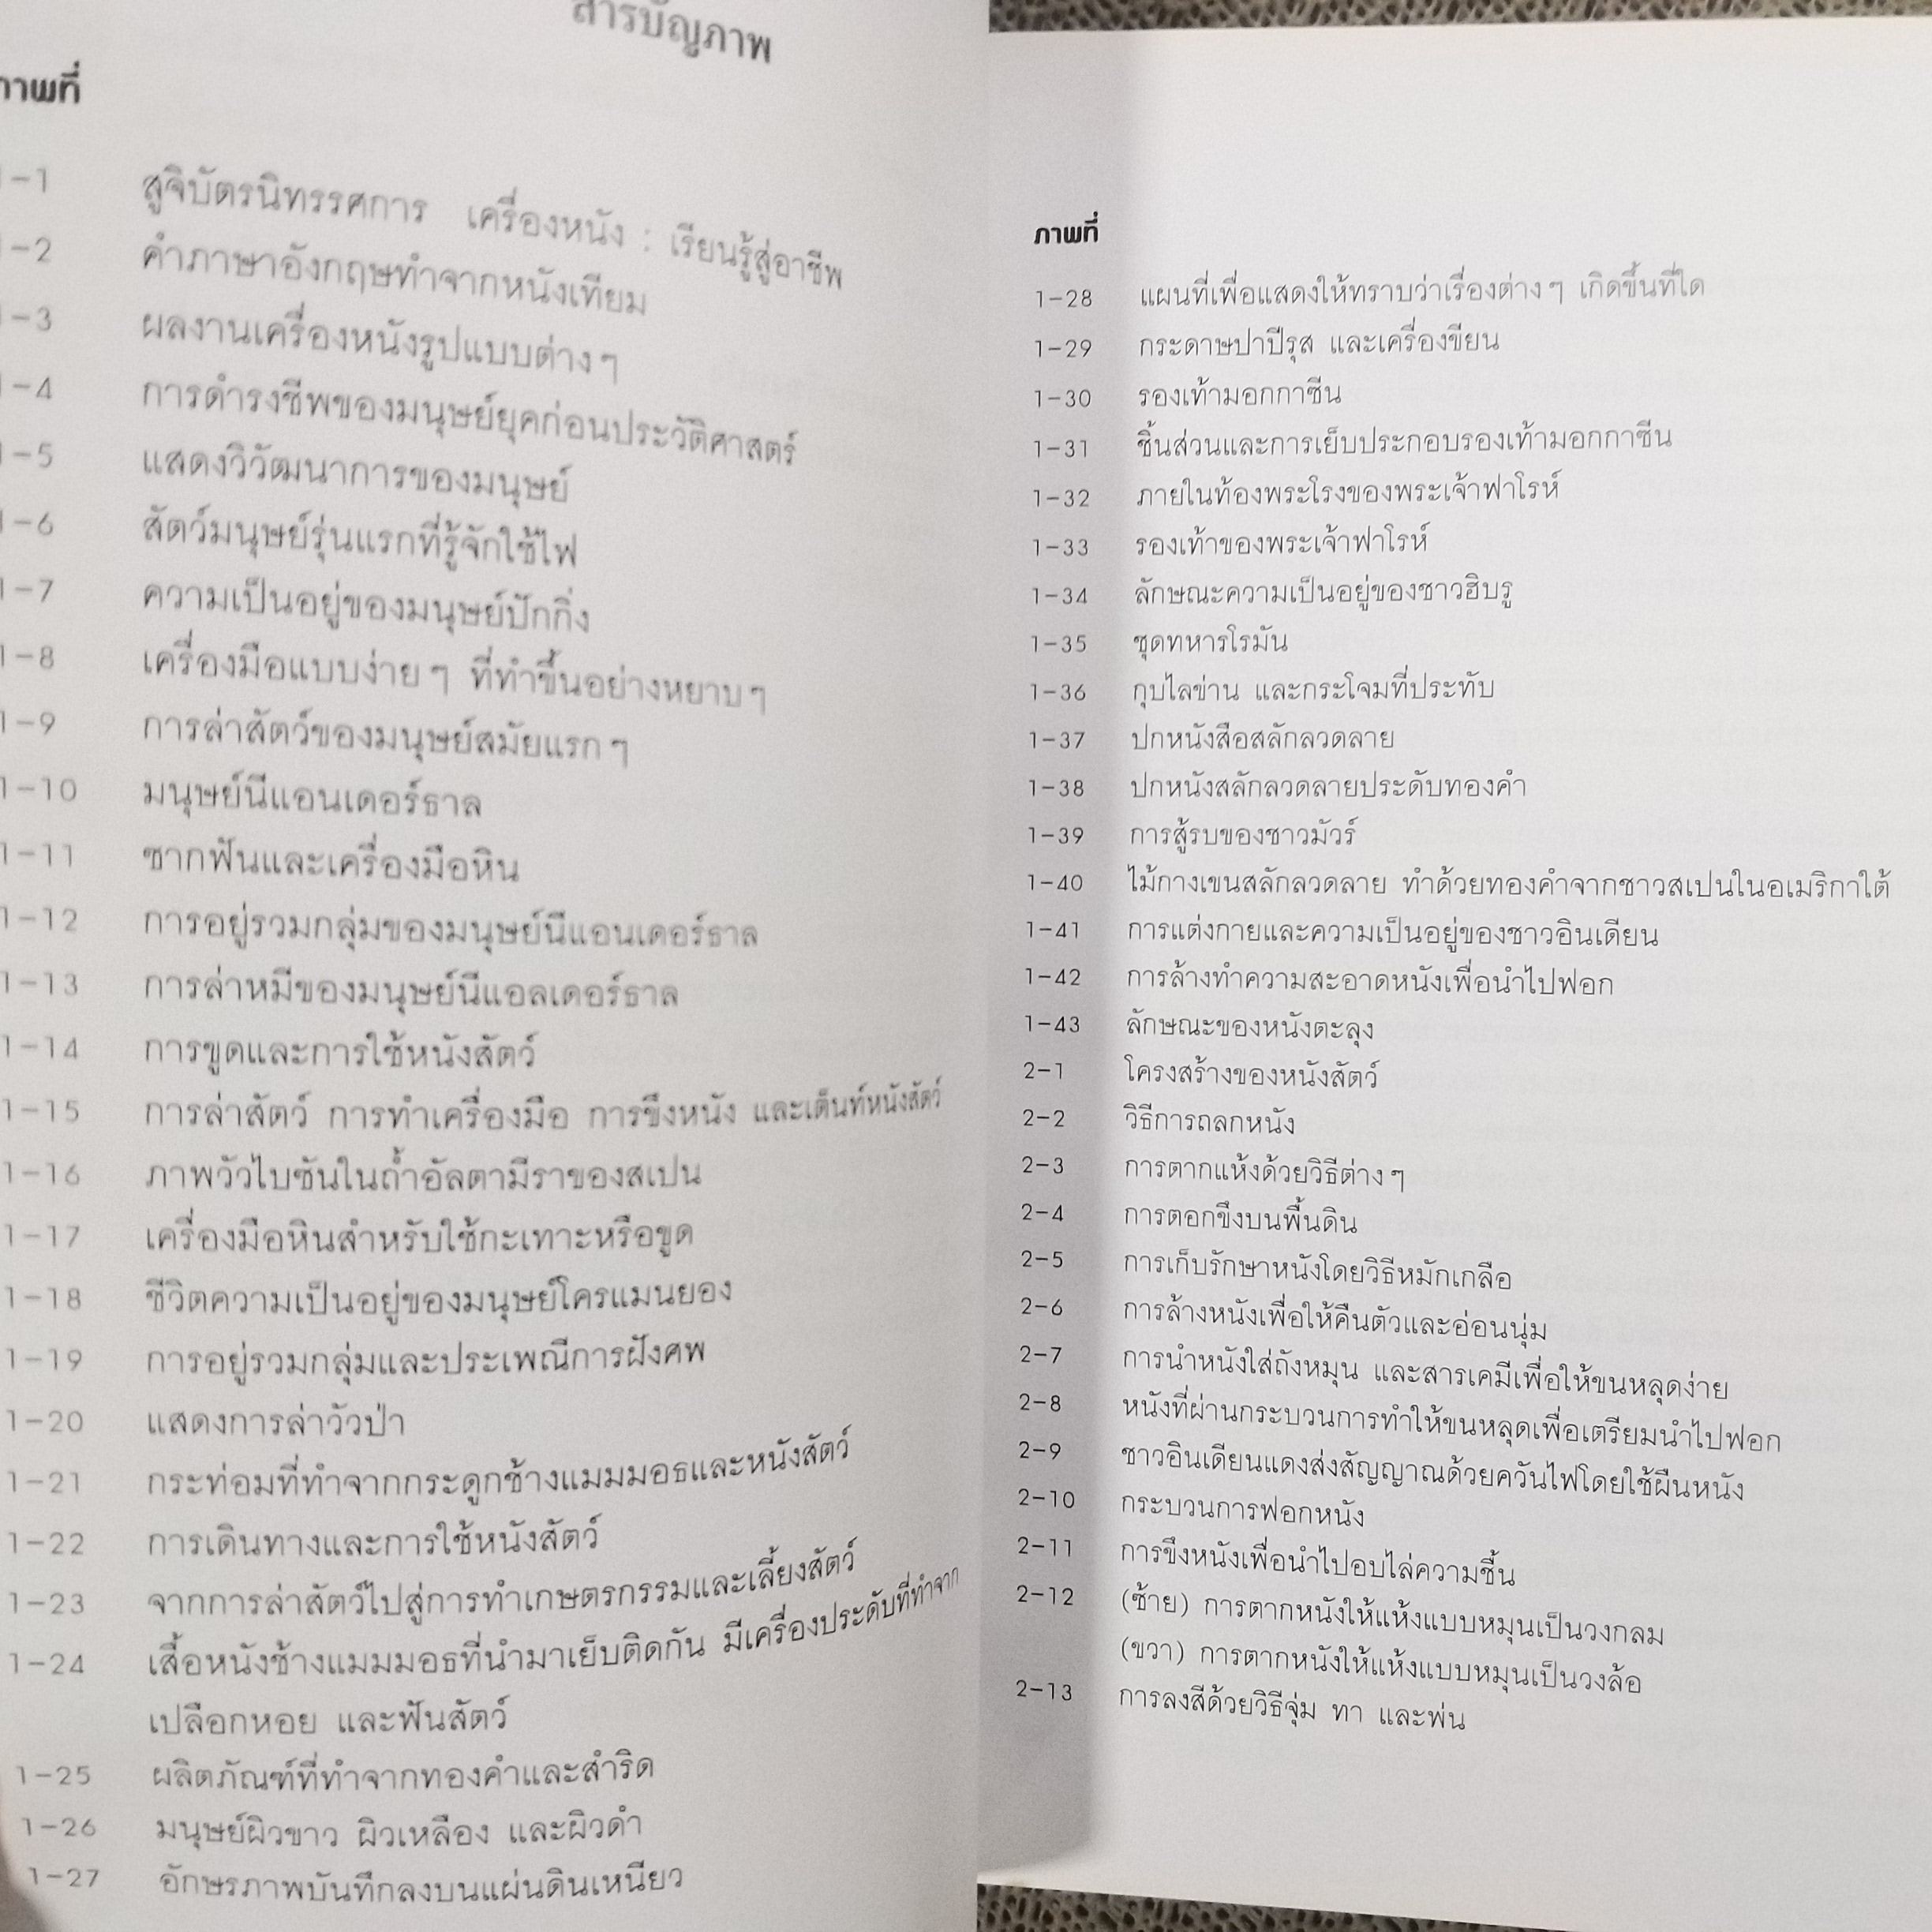 สารบัญภาพ
ภาพที่
1-1 สูจิบัตรนิทรรศการ เครื่องหนัง : เรียนรู้สู่อาชีพ
1-2 คำภาษาอังกฤษทำจากหนังเทียม
1-3 ผลงานเครื่องหนังรูปแบบต่างๆ
1-4 การดำรงชีพของมนุษย์ยุคก่อนประวัติศาสตร์
1-5 แสดงวิวัฒนาการของมนุษย์
1-6 สัตว์มนุษย์รุ่นแรกที่รู้จักใช้ไฟ
1-7 ความเป็นอยู่ของมนุษย์ปักกิ่ง
1-8 เครื่องมือแบบง่ายๆ ที่ทำขึ้นอย่างหยาบๆ
1-9 การล่าสัตว์ของมนุษย์สมัยแรกๆ
1-10 มนุษย์นีแอนเดอร์ธาล
1-11 ซากฟันและเครื่องมือหิน
1-12 การอยู่รวมกลุ่มของมนุษย์นีแอนเดอร์ธาล
1-13 การล่าหมีของมนุษย์นีแอลเดอร์ธาล
1-14 การขูดและการใช้หนังสัตว์
1-15 การล่าสัตว์ การทำเครื่องมือ การขึงหนัง และเต็นท์หนังสัตว์
1-16 ภาพวัวไบซันในถ้ำอัลตามีราของสเปน
1-17 เครื่องมือหินสำหรับใช้กะเทาะหรือขูด
1-18 ชีวิตความเป็นอยู่ของมนุษย์โครแมนยอง
1-19 การอยู่รวมกลุ่มและประเพณีการฝังศพ
1-20 แสดงการล่าวัวป่า
1-21 กระท่อมที่ทำจากกระดูกช้างแมมมอธและหนังสัตว์
1-22 การเดินทางและการใช้หนังสัตว์
1-23 จากการล่าสัตว์ไปสู่การทำเกษตรกรรมและเลี้ยงสัตว์
1-24 เสื้อหนังช้างแมมมอธที่นำมาเย็บติดกัน มีเครื่องประดับที่ทำจาก
เปลือกหอย และฟันสัตว์
1-25 ผลิตภัณฑ์ที่ทำจากทองคำและสำริด
1-26 มนุษย์ผิวขาว ผิวเหลือง และผิวดำ
1-27 อักษรภาพบันทึกลงบนแผ่นดินเหนียว
ภาพที่
1-28 แผนที่เพื่อแสดงให้ทราบว่าเรื่องต่างๆ เกิดขึ้นที่ใด
1-29 กระดาษปาปีรุส และเครื่องขียน
1-30 รองเท้ามอกกาซีน
1-31 ชิ้นส่วนและการเย็บประกอบรองเท้ามอกกาซีน
1-32 ภายในท้องพระโรงของพระเจ้าฟาโรห์
1-33 รองเท้าของพระเจ้าฟาโรห์
1-34 ลักษณะความเป็นอยู่ของชาวฮิบรู
1-35 ชุดทหารโรมัน
1-36 กุบไลข่าน และกระโจมที่ประทับ
1-37 ปกหนังสือสลักลวดลาย
1-38 ปกหนังสลักลวดลายประดับทองคำ
1-39 การสู้รบของชาวมัวร์
1-40 ไม้กางเขนสลักลวดลาย ทำด้วยทองคำจากชาวสเปนในอเมริกาใต้
1-41 การแต่งกายและความเป็นอยู่ของชาวอินเดียน
1-42 การล้างทำความสะอาดหนังเพื่อนำไปฟอก
1-43 ลักษณะของหนังตะลุง
2-1 โครงสร้างของหนังสัตว์
2-2 วิธีการถลกหนัง
2-3 การตากแห้งด้วยวิธีต่างๆ
2-4 การตอกขึงบนพื้นดิน
2-5 การเก็บรักษาหนังโดยวิธีหมักเกลือ
2-6 การล้างหนังเพื่อให้คืนตัวและอ่อนนุ่ม
2-7 การนำหนังใส่ถังหมุน และสารเคมีเพื่อให้ขนหลุดง่าย
2-8 หนังที่ผ่านกระบวนการทำให้ขนหลุดเพื่อเตรียมนำไปฟอก
2-9 ชาวอินเดียนแดงส่งสัญญาณด้วยควันไฟโดยใช้ผืนหนัง
2-10 กระบวนการฟอกหนัง
2-11 การขึงหนังเพื่อนำไปอบไล่ความชื้น
2-12 (ซ้าย) การตากหนังให้แห้งแบบหมุนเป็นวงกลม
(ขวา) การตากหนังให้แห้งแบบหมุนเป็นวงล้อ
2-13 การลงสีด้วยวิธีจุ่ม ทา และพ่น